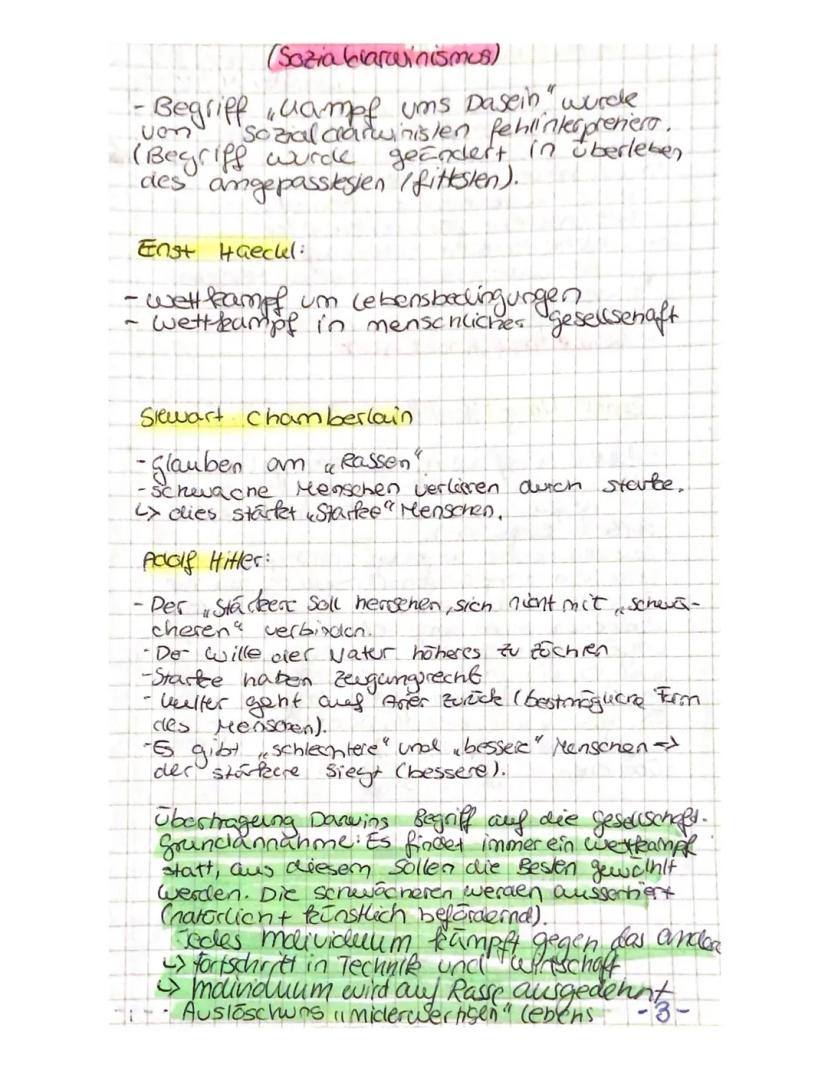 (Sozialdarwinismus)
- Begriff „Kampf ums Dasein" wurde
von Sozialdarwinisten fehlinterpretiert.
(Begriff wurde geändert in überleben
des angepasstesten / fittesten).
Enst Haeckel:
- Wettkampf um Lebensbedingungen
- Wettkampf in menschlicher gesellschaft
Stewart Chamberlain
- Glauben am „Rassen"
- schwache Menschen verlieren durch starke.
↳ dies stärket „Starke" Menschen.
Adolf Hitler:
- Der „Stärkere soll herrschen, sich nicht mit „schwä-
cheren" verbinden.
- Der Wille der Natur höheres zu züchten
- Starke haben Zeugungsrecht
- Kultur geht auf Arier zurück (bestmögliche Form
des Menschen).
- Es gibt „schlechtere" und „bessere" Menschen →
der stärkere siegt (bessere).
Übertragung Darwins Begriff auf die gesellschaft.
Grundannahme: Es findet immer ein Wettkampf
statt, aus diesem sollen die Besten gewählt
werden. Die schwächeren werden aussortiert
(natürlich + künstlich befördernd).
Jedes Individuum kämpft gegen das andere
↳ Fortschritt in Technik und Wirtschaft
↳ Individuum wird auf Rasse ausgedehnt
- Auslöschung „minderwertigen" Lebens -3-